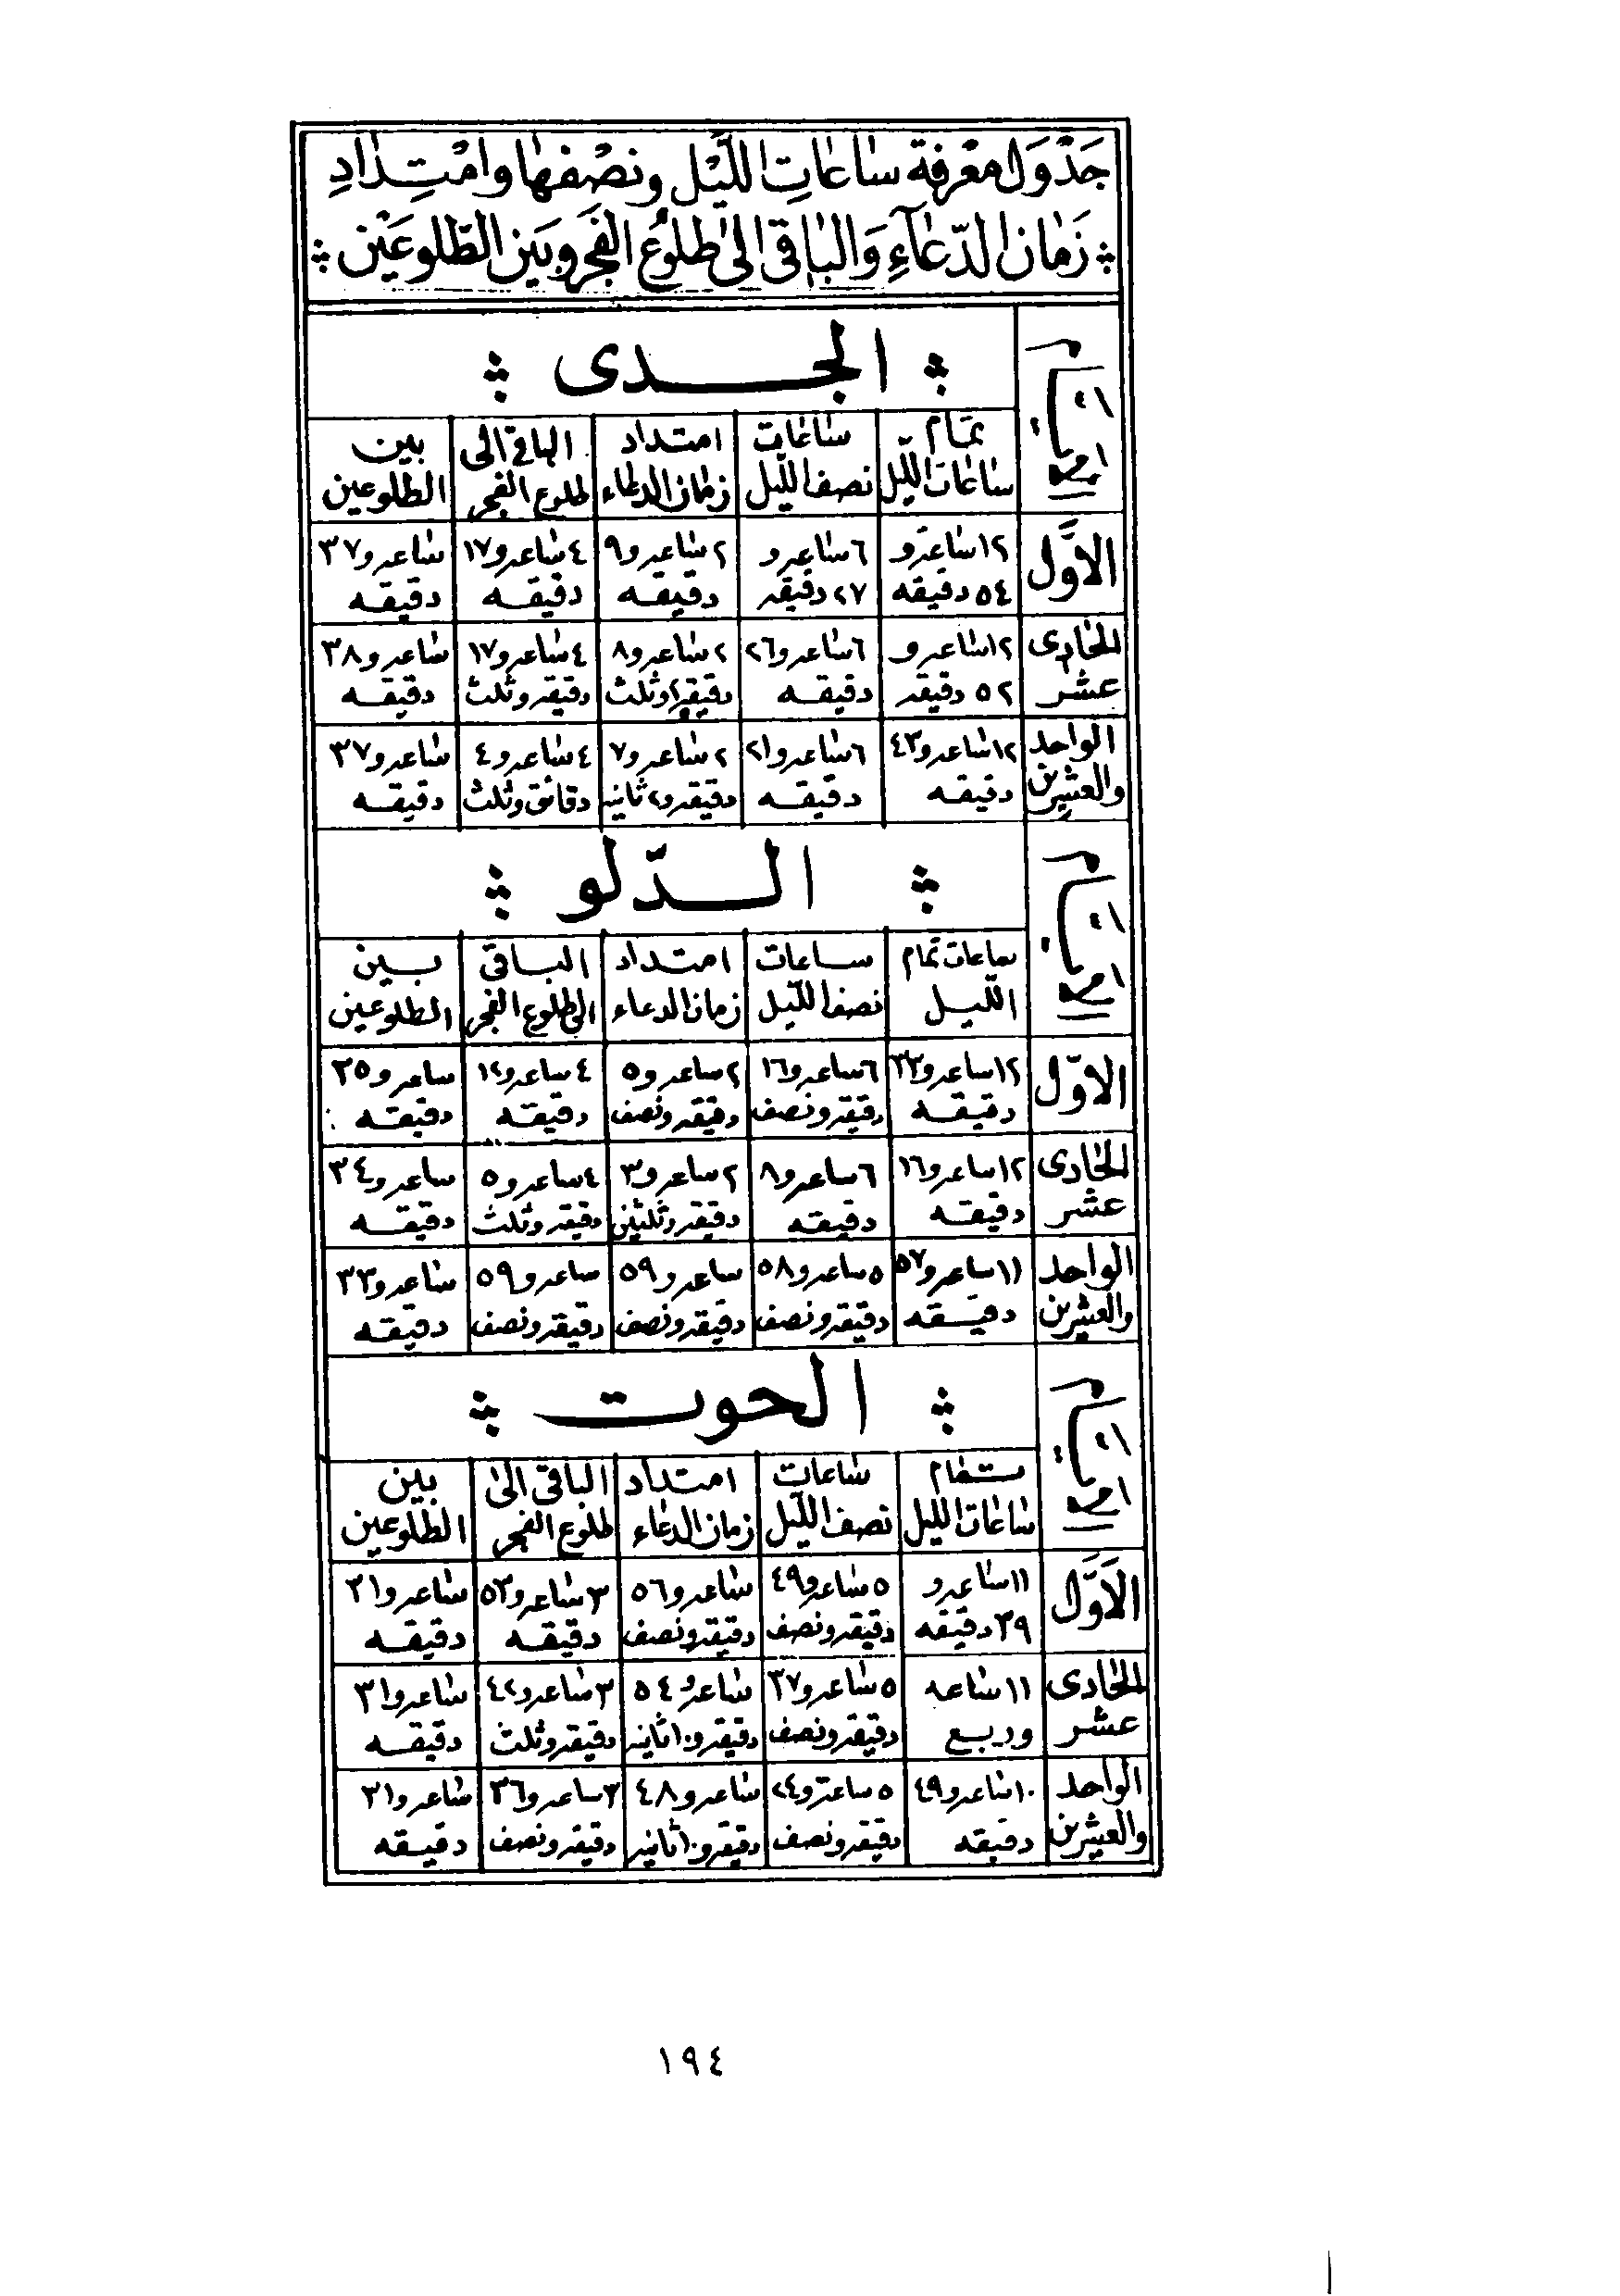 جَدْوَل مَعْرِفَة سَاعَاتِ اللَّيْل وَنصْفهَا وَامْتِدَادِ
زَمَان الدّعَاءِ وَالبَاقى الىٰ طلوُع الفَجر وبَين الطّلوعَيْن
الجدى
تمام ساعات اللّيل | ساعات نصف اللّيل | امتداد زمان الدعاء | الباقى الى طلوع الفجر | بين الطلوعين
الاَوَّل | ١٢ ساعة و ٥٤ دقيقه | ٦ ساعه و ٢٧ دقيقه | ٢ ساعه و ٩ دقيقه | ٤ ساعه و ١٧ دقيقه | ساعه و ٣٧ دقيقه
الحادى عشر | ١٢ ساعه و ٥٢ دقيقه | ٦ ساعه و ٢٦ دقيقه | ٢ ساعه و ٨ دقيقه و ثلث | ٤ ساعه و ١٧ دقيقه و ثلث | ساعه و ٣٨ دقيقه
الواحد والعشرين | ١٢ ساعه و ٤٣ دقيقه | ٦ ساعه و ٢١ دقيقه | ٢ ساعه و ٧ دقيقه و ٢ ثانيه | ٤ ساعه و ٤ دقائق و ثلث | ساعه و ٣٧ دقيقه
الدّلو
ساعات تمام اللّيل | ساعات نصف اللّيل | امتداد زمان الدعاء | الباقى الى طلوع الفجر | بين الطلوعين
الاوّل | ١٢ ساعه و ٣٣ دقيقه | ٦ ساعه و ١٦ دقيقه و نصف | ٢ ساعه و ٥ دقيقه و نصف | ٤ ساعه و ١٢ دقيقه | ساعه و ٣٥ دقيقه
الحادى عشر | ١٢ ساعه و ١٦ دقيقه | ٦ ساعه و ٨ دقيقه | ٢ ساعه و ٣ دقيقه و ثلثين | ٤ ساعه و ٥ دقيقه و ثلث | ساعه و ٣٤ دقيقه
الواحد والعشرين | ١١ ساعه و ٥٧ دقيقه | ٥ ساعه و ٥٨ دقيقه و نصف | ساعه و ٥٩ دقيقه و نصف | ساعه و ٥٩ دقيقه و نصف | ساعه و ٣٣ دقيقه
الحوت
تمام ساعات الليل | ساعات نصف اللّيل | امتداد زمان الدعاء | الباقى الىٰ طلوع الفجر | بين الطلوعين
الاَوَّل | ١١ ساعه و ٣٩ دقيقه | ٥ ساعه و ٤٩ دقيقه و نصف | ساعه و ٥٦ دقيقه و نصف | ٣ ساعه و ٥٣ دقيقه | ساعه و ٣١ دقيقه
الحادى عشر | ١١ ساعه وربع | ٥ ساعه و ٣٧ دقيقه و نصف | ساعه و ٥٤ دقيقه و ١٠ ثانيه | ٣ ساعه و ٤٢ دقيقه و ثلث | ساعه و ٣١ دقيقه
الواحد والعشرين | ١٠ ساعه و ٤٩ دقيقه | ٥ ساعة و ٢٤ دقيقه و نصف | ساعه و ٤٨ دقيقه و ١٠ ثانيه | ٣ ساعه و ٣٦ دقيقه و نصف | ساعه و ٣١ دقيقه
١٩٤